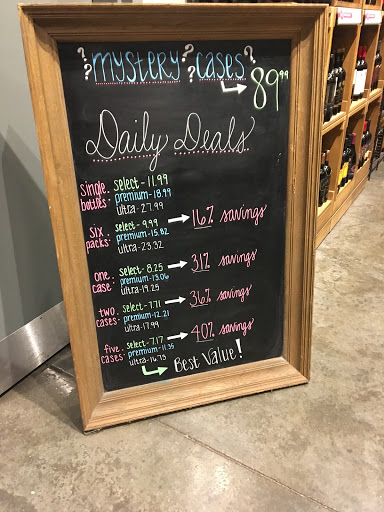 ? mystery ? cases ?
→ 89.99
Daily Deals
single bottles: select - 11.99
premium - 18.99
ultra - 27.99
six packs: select - 9.99 → 16% savings
premium - 15.82
ultra - 23.32
one case: select - 8.25 → 31% savings
premium - 13.06
ultra - 19.25
two cases: select - 7.71 → 36% savings
premium - 12.21
ultra - 17.99
five cases: select - 7.17 → 40% savings
premium - 11.35
ultra - 16.73
→ Best Value!